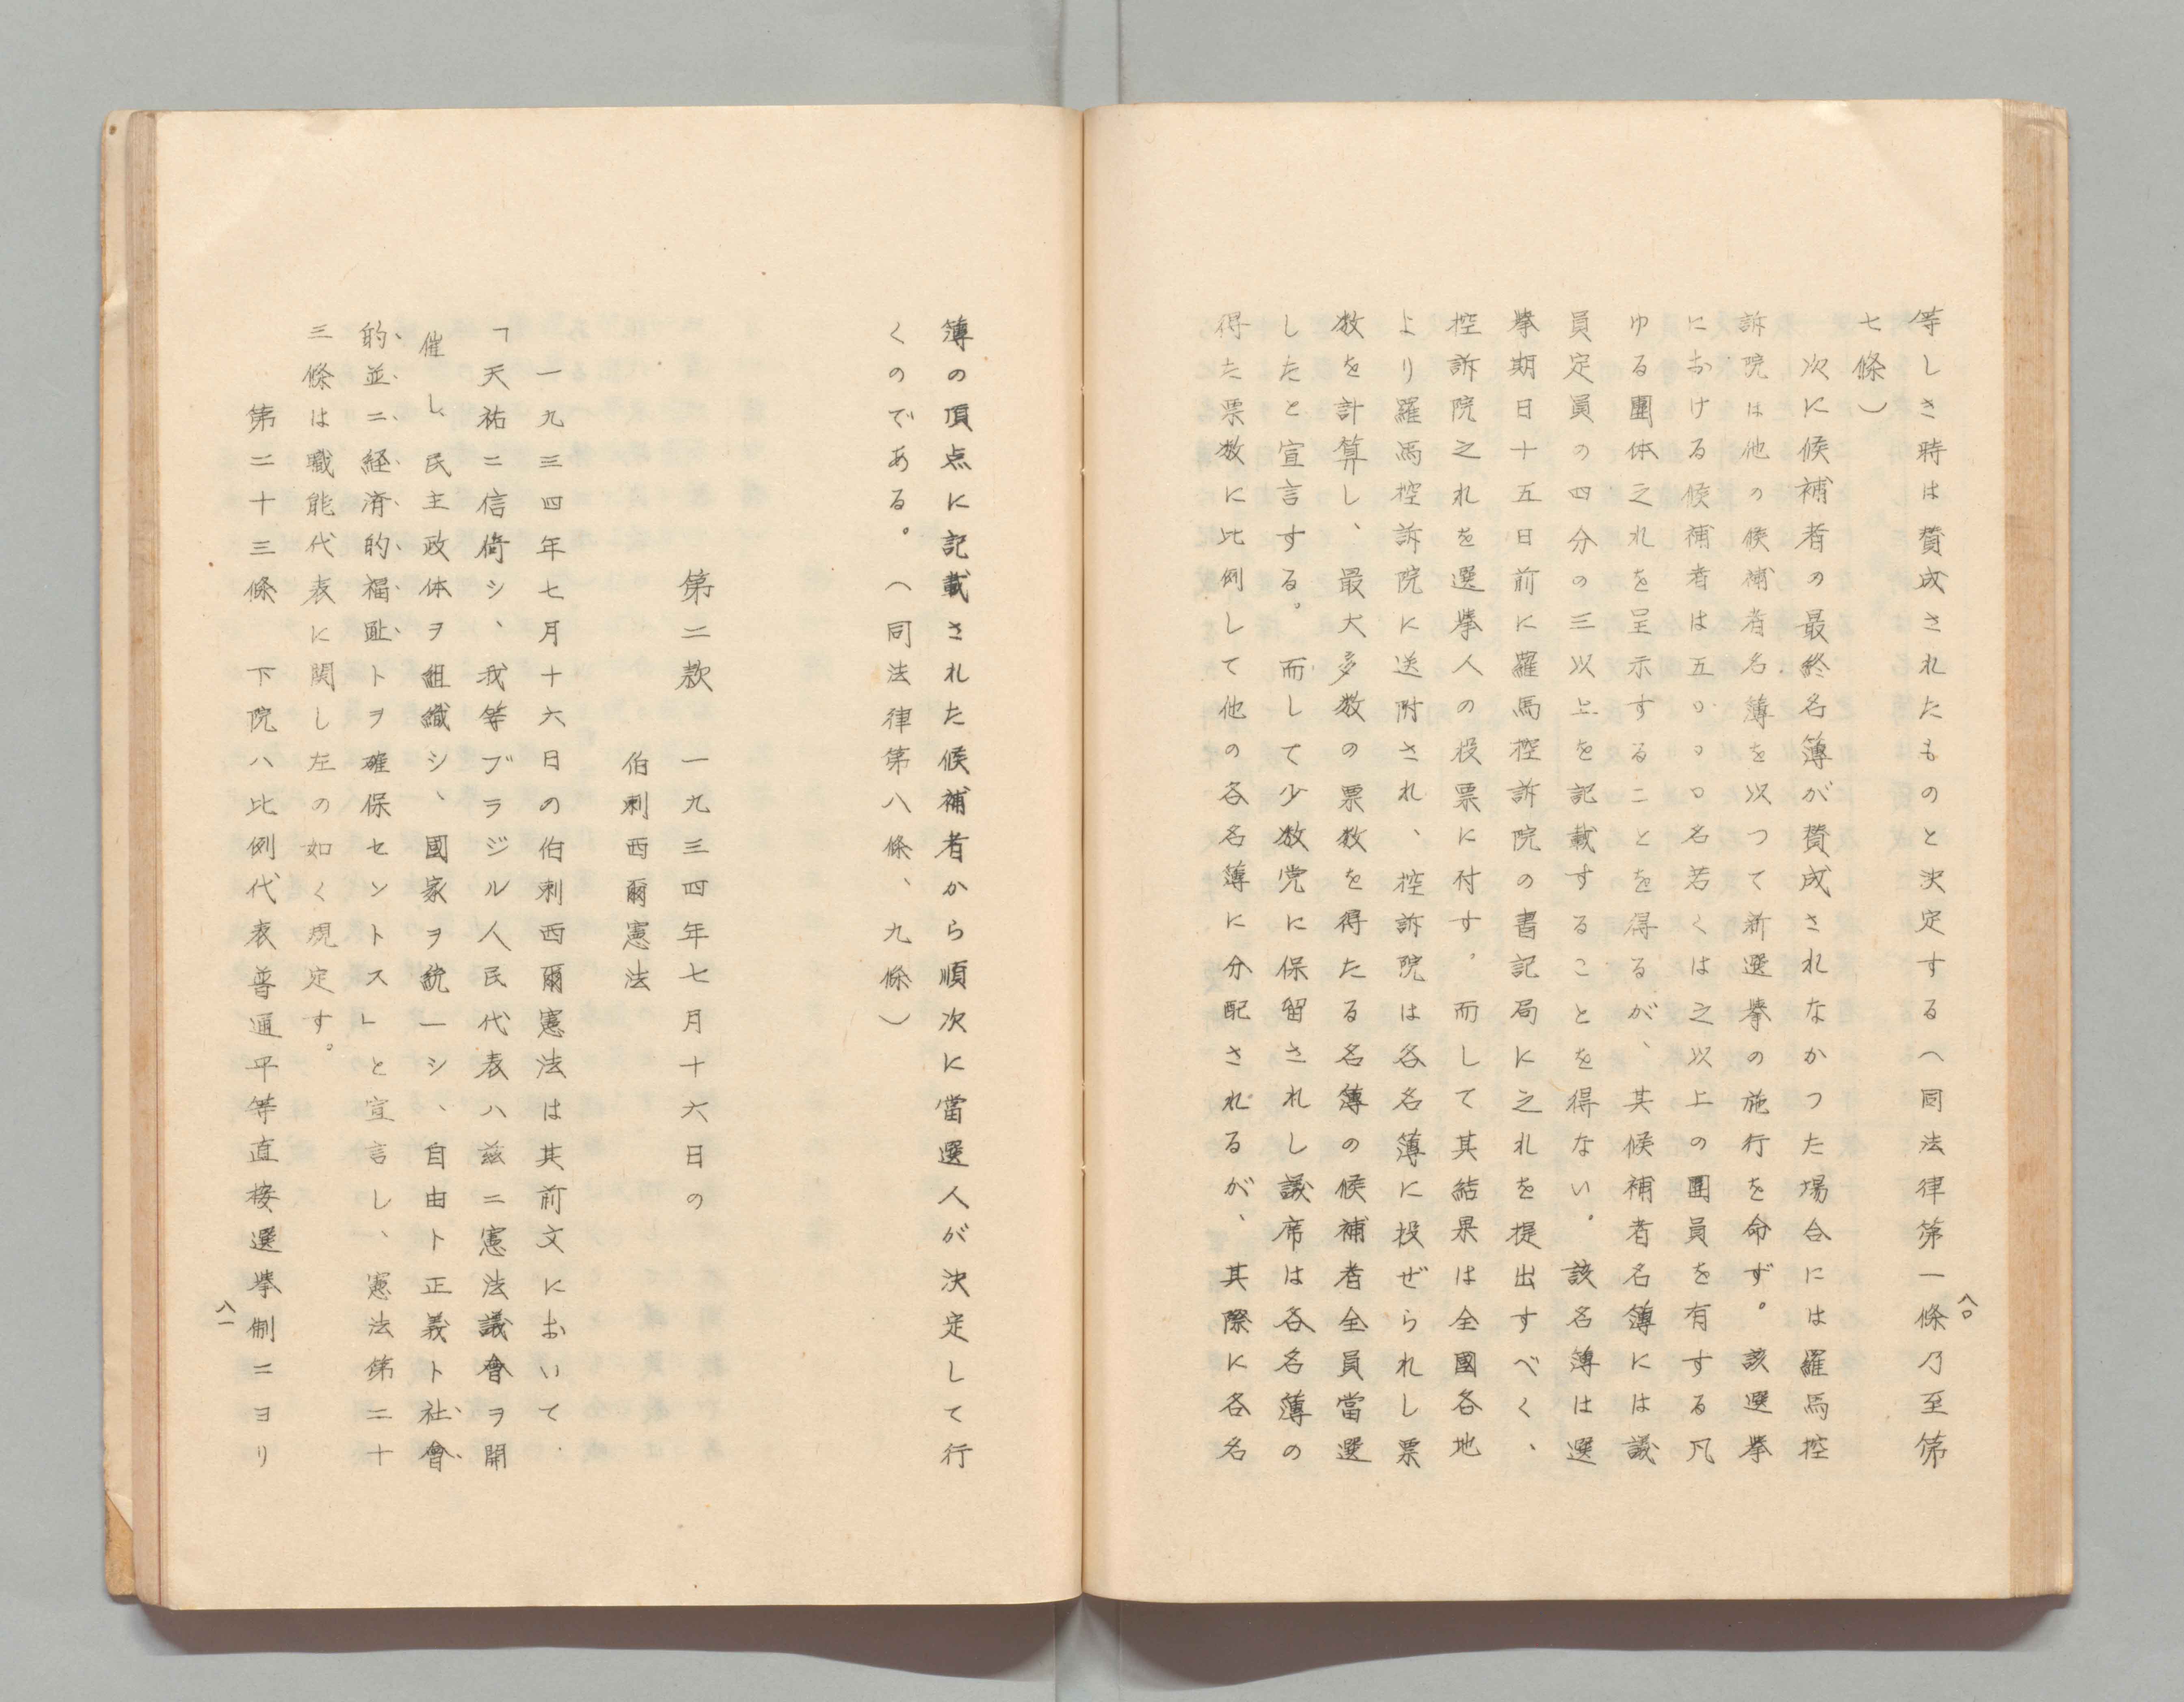 等しき時は賛成されたものと決定する（同法律第一條乃至第
七條）
次に候補者の最終名簿が賛成されなかつた場合には羅馬控
訴院は他の候補者名簿を以つて新選挙の施行を命ず。該選挙
における候補者は五〇〇〇名若くは之以上の團員を有する凡
ゆる團体之れを呈示することを得るが、其候補者名簿には議
員定員の四分の三以上を記載することを得ない。該名簿は選
挙期日十五日前に羅馬控訴院の書記局に之れを提出すべく、
控訴院之れを選挙人の投票に付す。而して其結果は全國各地
より羅馬控訴院に送附され、控訴院は各名簿に投ぜられし票
数を計算し、最大多数の票数を得たる名簿の候補者全員當選
したと宣言する。而して少数党に保留されし議席は各名簿の
得た票数に比例して他の各名簿に分配されるが、其際に各名
八〇
簿の頂点に記載された候補者から順次に當選人が決定して行
くのである。（同法律第八條、九條）
第二款 一九三四年七月十六日の
伯剌西爾憲法
一九三四年七月十六日の伯剌西爾憲法は其前文において、
「天祐ニ信倚シ、我等ブラジル人民代表ハ茲ニ憲法議會ヲ開
催し、民主政体ヲ組織シ、國家ヲ統一シ、自由ト正義ト社會
的並ニ経済的福祉トヲ確保セントス」と宣言し、憲法第二十
三條は職能代表に関し左の如く規定す。
第二十三條 下院ハ比例代表普通平等直接選挙制ニヨリ
八一